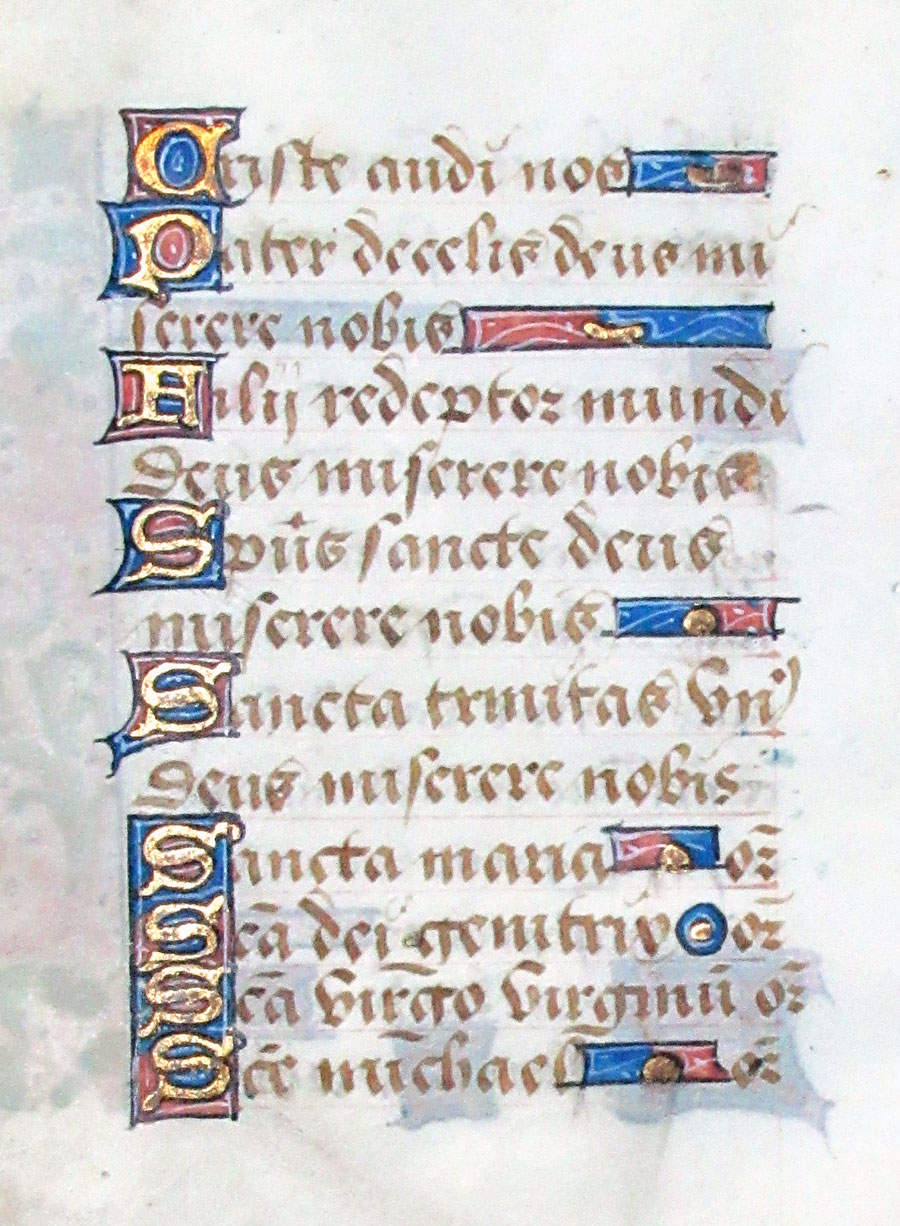 Criste audi nos
Pater decelis deus mi
serere nobis
Filij redẽptor mundi
deus miserere nobis
Spũs sancte deus
miserere nobis
Sancta trinitas vnꝰ
deus miserere nobis
Sancta maria or̃
Scã dei genitrix or̃
Scã virgo virginũ or̃
Scẽ michael or̃